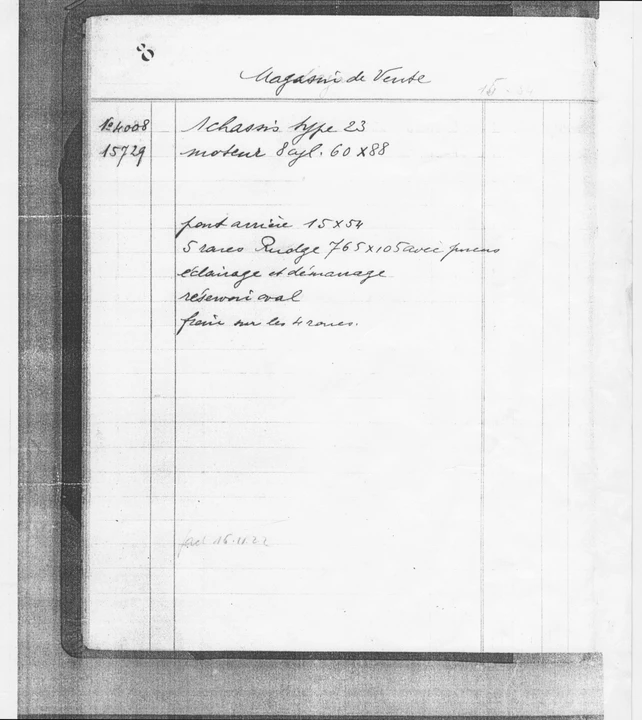 8
Magasin de Vente
No 4008 1 chassis type 23
15729 moteur 8 cyl. 60 x 88
pont arrière 15 x 54
5 roues Rudge 765 x 105 avec pneus
éclairage et démarrage
réservoir oval
frein sur les 4 roues.
fact 16.11.22